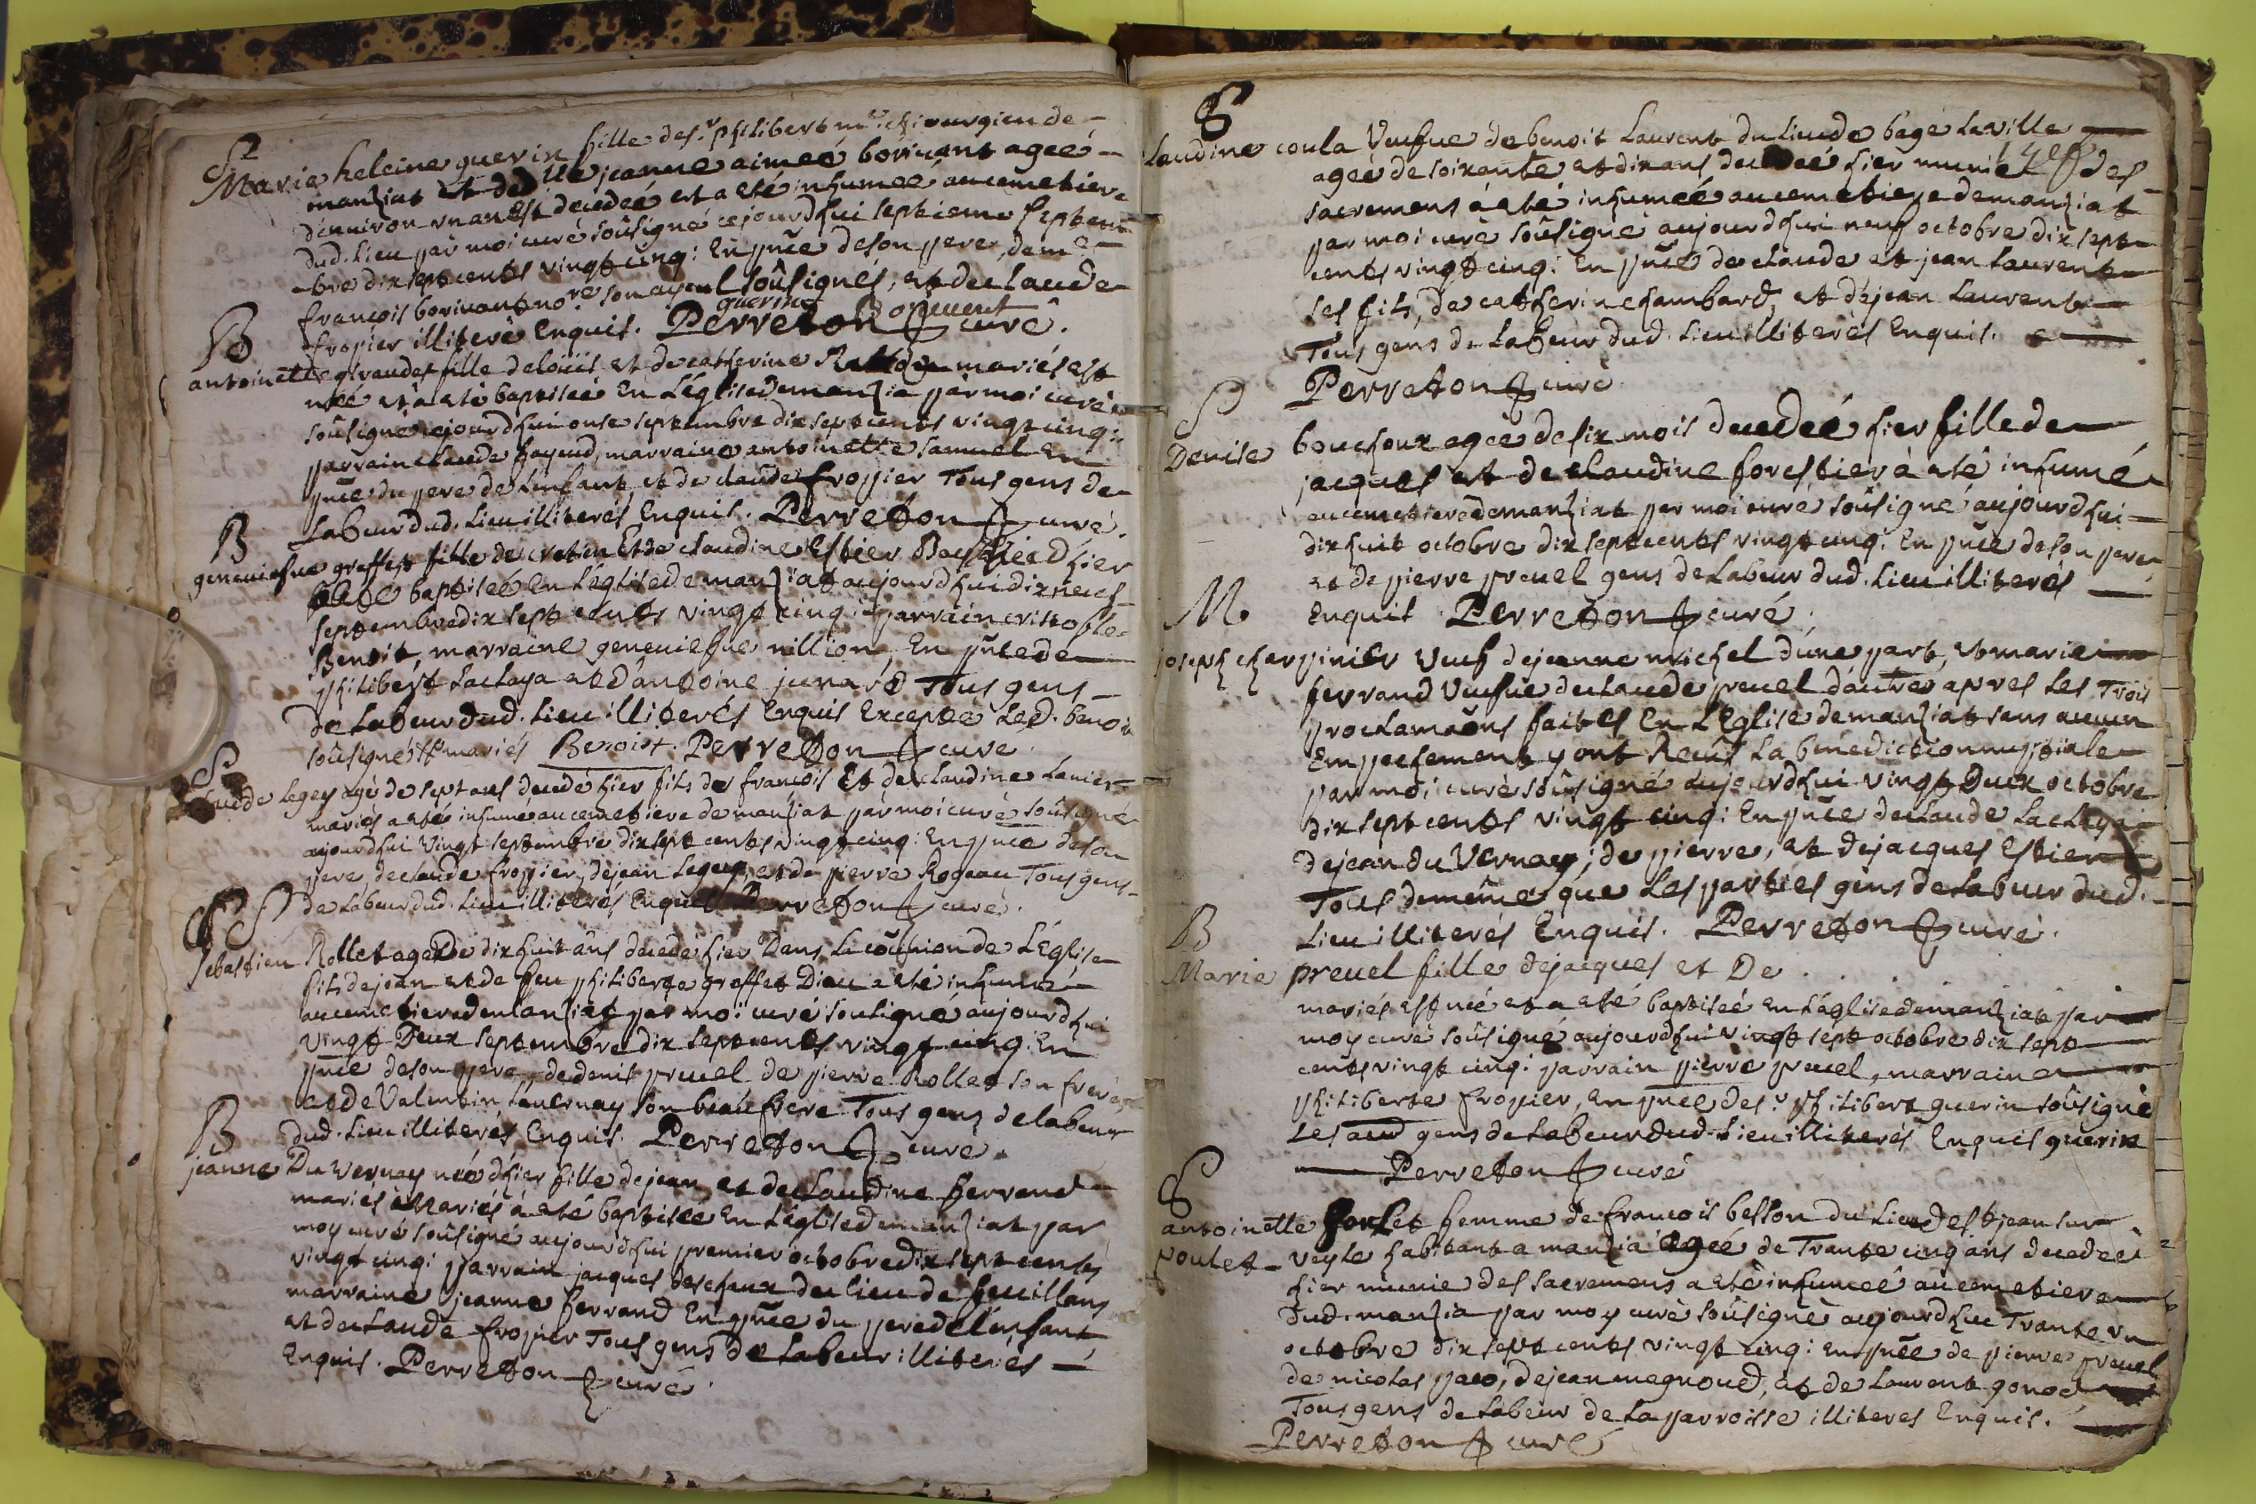 S
Maria heleine guerin fille de s.r philibert m.e chirurgien de
manziat et de d.lle jeanne aimeé borivent ageé
d'environ un an est decedeé et a eté inhumeé au cemetiere
dud. lieu par moi curé soûsigné cejourdhui septieme septem
bre dix sept cents vingt cinq: En pñce de son pere, de m.e
françois borivent no.re son ayeul soûsignés, et de claude
fropier illiteré Enquis. guerin Borivent Perreton curé.
B
antoinette giraudet fille de louis et de catherine mariés est
neé et a eté baptiseé En L'église de manzia par moi curé
soûsigné cejourdhui onse septembre dix sept cents vingt cinq:
parrain claude fayend, marraine antoinette samuel En
pñce du pere de L'enfant, et de claude fropier Tous gens de
Labeur dud. Lieu illiterés Enquis. Perreton curé.
B
geneuiefue greffet fille de et de claudine Estier d'hier
baptiseé En L'église de manziat aujourdhui dixneuf
septembre dix sept cents vingt cinq: parrain cristofle
Benoit, marraine geneuiefue nillion, En pñce de
philibert Laclaya et d'antoine junard Tous gens
de Labeur dud. Lieu illiterés Enquis Excepté Led. benoit
soûsigné mariés Benoist. Perreton curé
S
claude Legey agé de sept ans decedé hier fils de françois Et de claudine Lanier
mariés a eté inhumé au cemetiere de manziat par moi curé soûsigné
aujourdhui vingt septembre dix sept cents vingt cinq: En pñce de son
pere, de claude fropier, de jean Legey, et de pierre Rogeau Tous gens
de Labeur dud. Lieu illiterés Enquis Perreton curé.
S
sebastien Rollet agé de dix huit ans decedé hier Dans La coñion de L'Église
fils de jean et de feu philiberte greffet Dieu a eté inhumé
au cemetiere de manziat par moi curé soûsigné aujourdhui
vingt Deux septembre dix sept cents vingt cinq: En
pñce de son pere, de denis preuel de pierre Rollet son frere
et de Valentin Lauernay son beau frere Tous gens de labeur
dud. Lieu illiterés Enquis. Perreton curé.
B
jeanne Du Vernay neé d'hier fille de jean et de claudine ferrand
mariés mariés a eté baptiseé En L'église de manziat par
moy curé soûsigné aujourdhui premier octobre dix sept cents
vingt cinq: parrain jacques deschaux du lieu de feuillens
marraine jeanne ferrand En pñce du pere de L'enfant
et de claude fropier Tous gens de Labeur illiterés
Enquis. Perreton curé.
S
claudine coula Veufue de benoit Laurent du lieu de bage La ville
ageé de soixante et dix ans decedeé hier munie des
sacremens a eté inhumeé au cemetiere de manziat
par moi curé soûsigné aujourdhui neuf octobre dix sept
cents vingt cinq: En pñce de claude et jean Laurent
ses fils, de catherin chambard, et de jean Laurent
Tous gens de Labeur dud. Lieu illiterés Enquis.
Perreton curé
S
Denise bouchoux ageé de six mois decedeé hier fille de
jacques et de claudine forestier à eté inhumé
au cemetiere de manziat par moi curé soûsigné aujourdhui
dix huit octobre dix sept cents vingt cinq: En pñce de son pere
et de pierre preuel gens de Labeur dud. Lieu illiterés
Enquis. Perreton curé.
M
joseph charpinier Veuf de jeanne michel d'une part, et marie
ferrand Veufue de claude preuel d'autre apres Les Trois
proclamaõns faites En L'Eglise de manziat sans aucun
Empechement y ont Receûs La bénediction nuptiale
par moi curé soûsigné aujourdhui vingt Deux octobre
dix sept cents vingt cinq: En pñce de claude Laclaya
de jean du Vernay, de pierre, et de jacques Estier
Tous de même que Les parties gens de Labeur dud.
Lieu illiterés Enquis. Perreton curé.
B
Marie preuel fille de jacques et De . . .
mariés est neé et a eté baptiseé En L'église de manziat par
moy curé soûsigné aujourdhui vingt sept octobre dix sept
cents vingt cinq: parrain pierre preuel, marraine
philiberte fropier, En pñce de s.r philibert guerin soûsigné
Les gens de Labeur dud. Lieu illiterés Enquis guerin
Perreton curé
S
antoinette femme de francois besson du Lieu de st jean sur
poulet veyle habitant a manzia ageé de Trante cinq ans decedeé
hier munie des sacremens a eté inhumeé au cemetiere
dud. manzia par moy curé soûsigné aujourdhui Trante un
octobre dix sept cents vingt cinq: En pñce de pierre preuel
de nicolas, de jean magnoud, et de Laurent gonod
Tous gens de Labeur de La parroisse illiteres Enquis.
Perreton curé